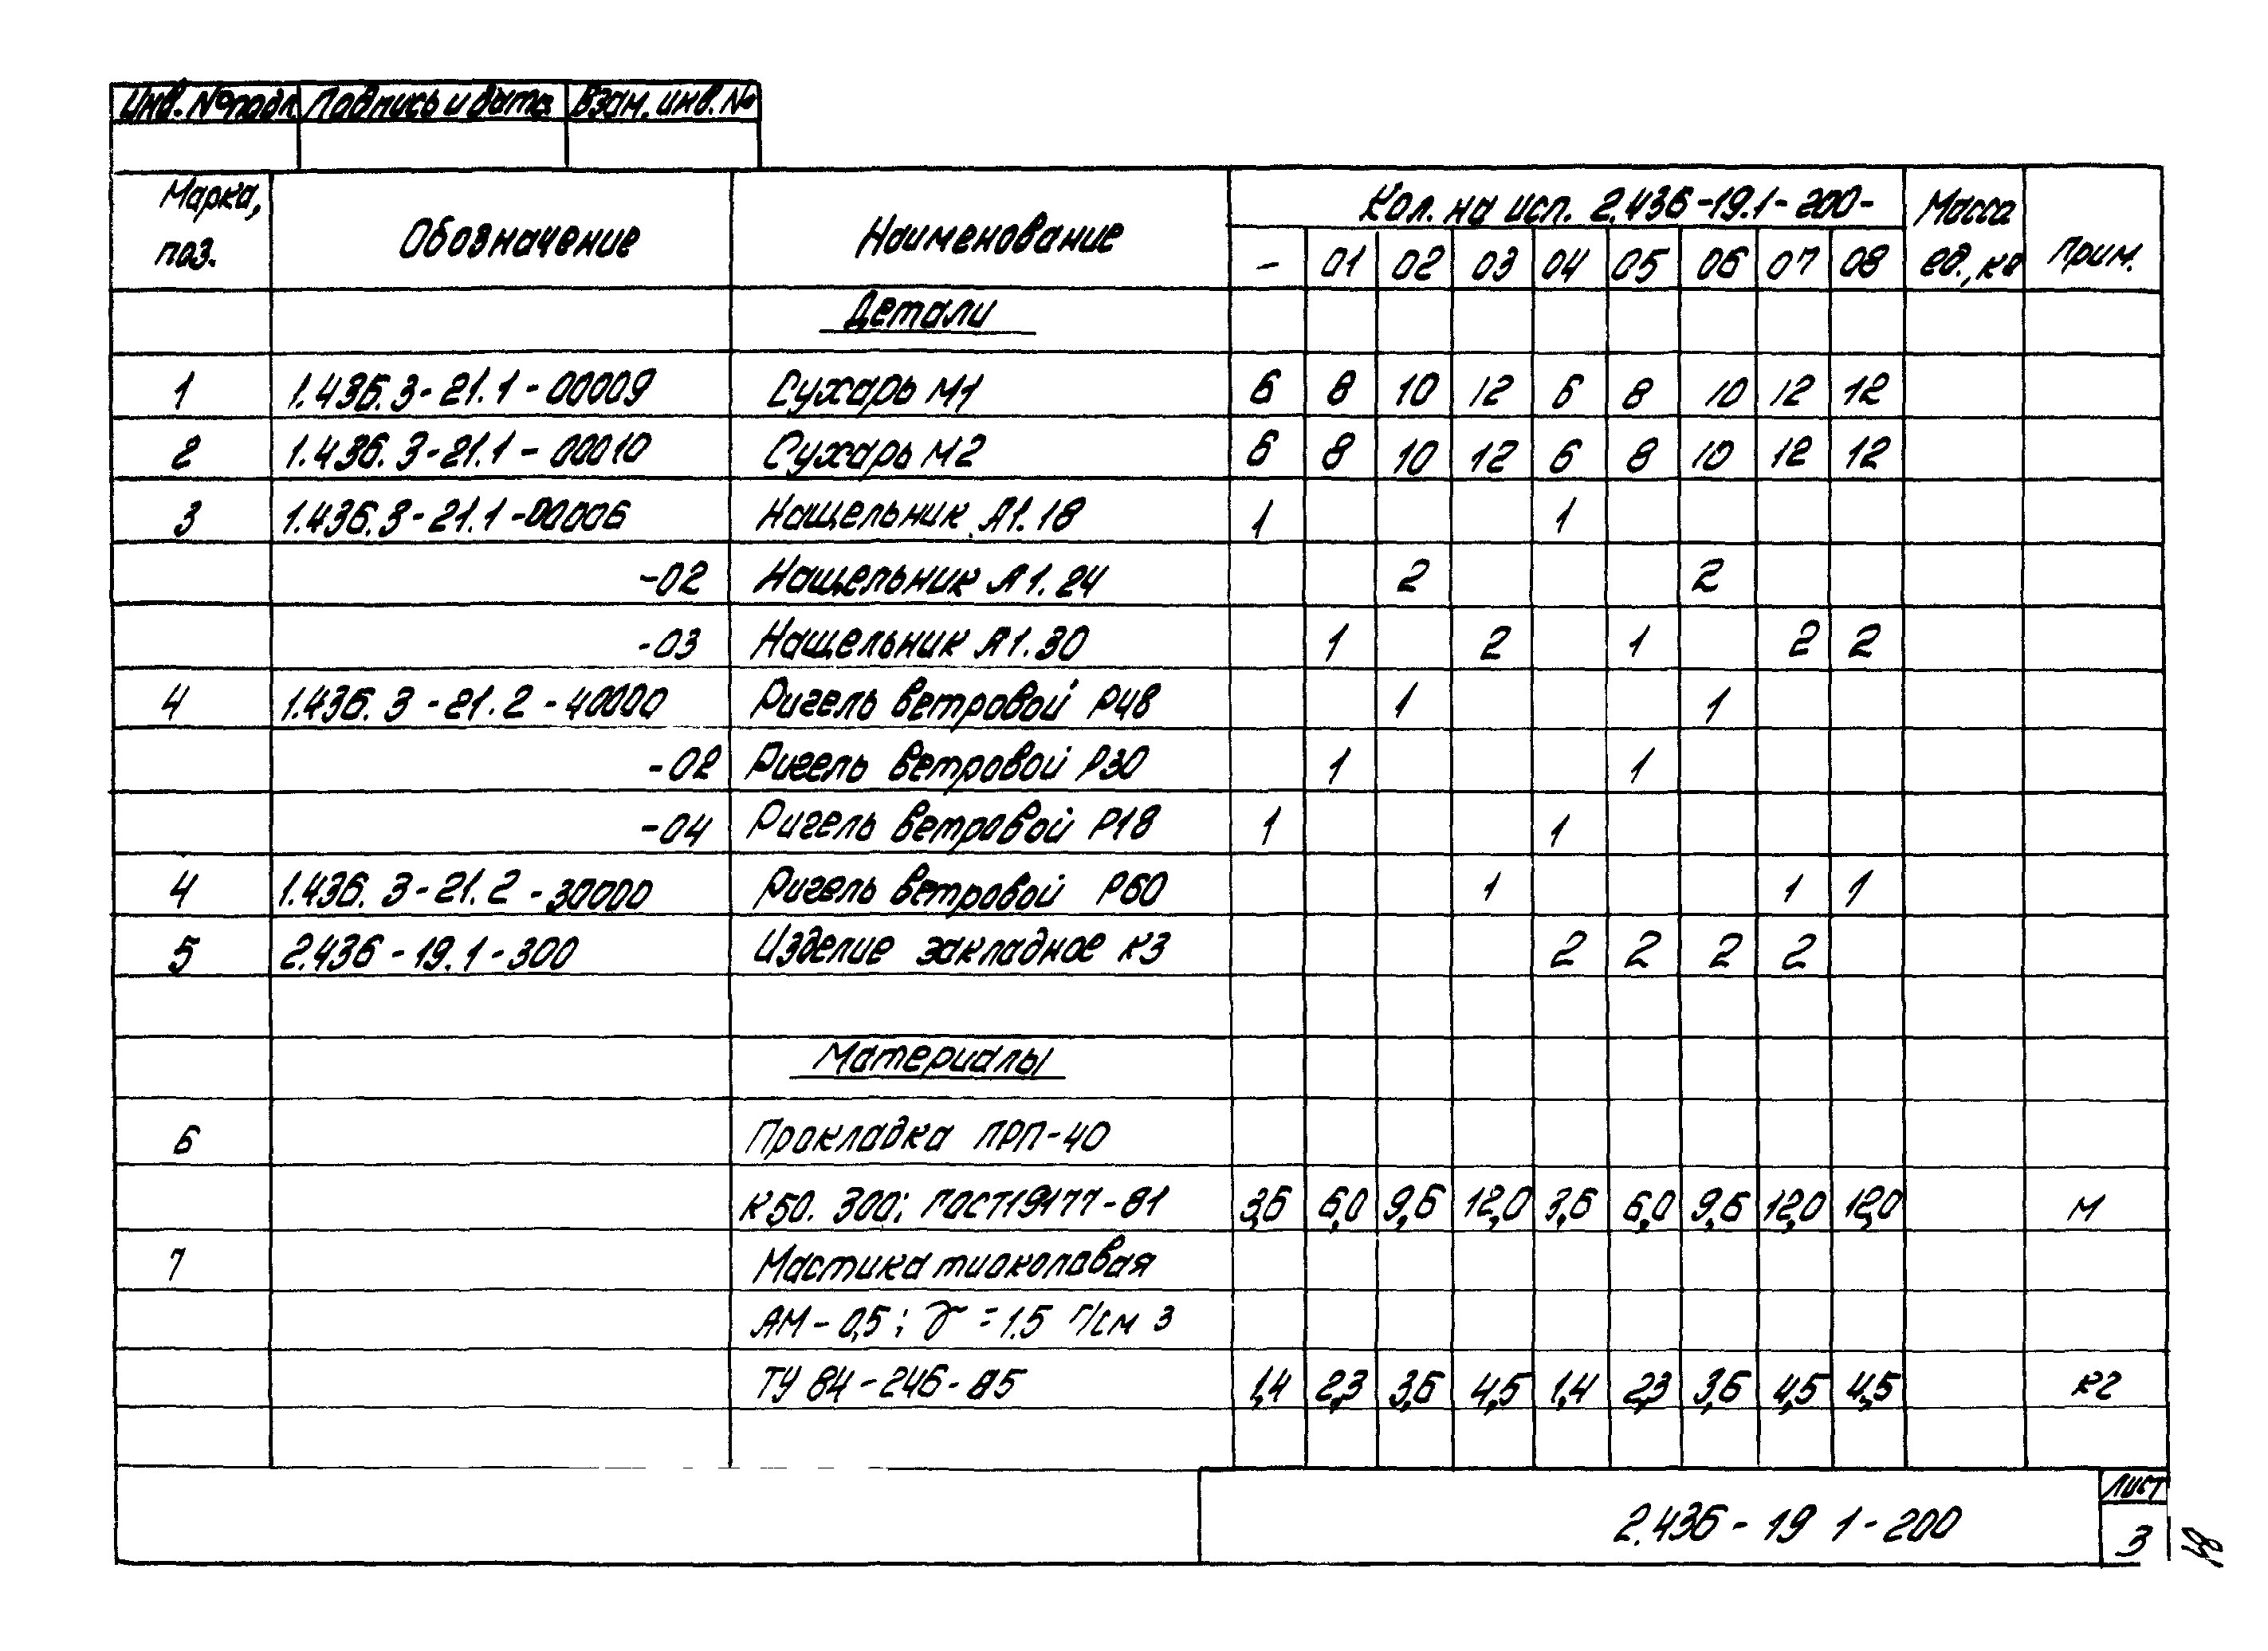 Инв. № подл. Подпись и дата Взам. инв. №
Марка, поз. Обозначение Наименование Кол. на исп. 2.436-19.1-200- Масса ед., кг Прим.
- 01 02 03 04 05 06 07 08
Детали
1 1.436.3-21.1-00009 Сухарь М1 6 8 10 12 6 8 10 12 12
2 1.436.3-21.1-00010 Сухарь М2 6 8 10 12 6 8 10 12 12
3 1.436.3-21.1-00006 Нащельник Л1.18 1 1
-02 Нащельник Л1.24 2 2
-03 Нащельник Л1.30 1 2 1 2 2
4 1.436.3-21.2-40000 Ригель ветровой Р48 1 1
-02 Ригель ветровой Р30 1 1
-04 Ригель ветровой Р18 1 1
4 1.436.3-21.2-30000 Ригель ветровой Р60 1 1 1
5 2.436-19.1-300 Изделие закладное К3 2 2 2 2
Материалы
6 Прокладка ПРП-40
К50.300; ГОСТ19177-81 3,6 6,0 9,6 12,0 3,6 6,0 9,6 12,0 12,0 м
7 Мастика тиоколовая
АМ-0,5; γ=1.5 г/см 3
ТУ 84-246-85 1,4 2,3 3,6 4,5 1,4 2,3 3,6 4,5 4,5 кг
2.436-19 1-200
Лист
3